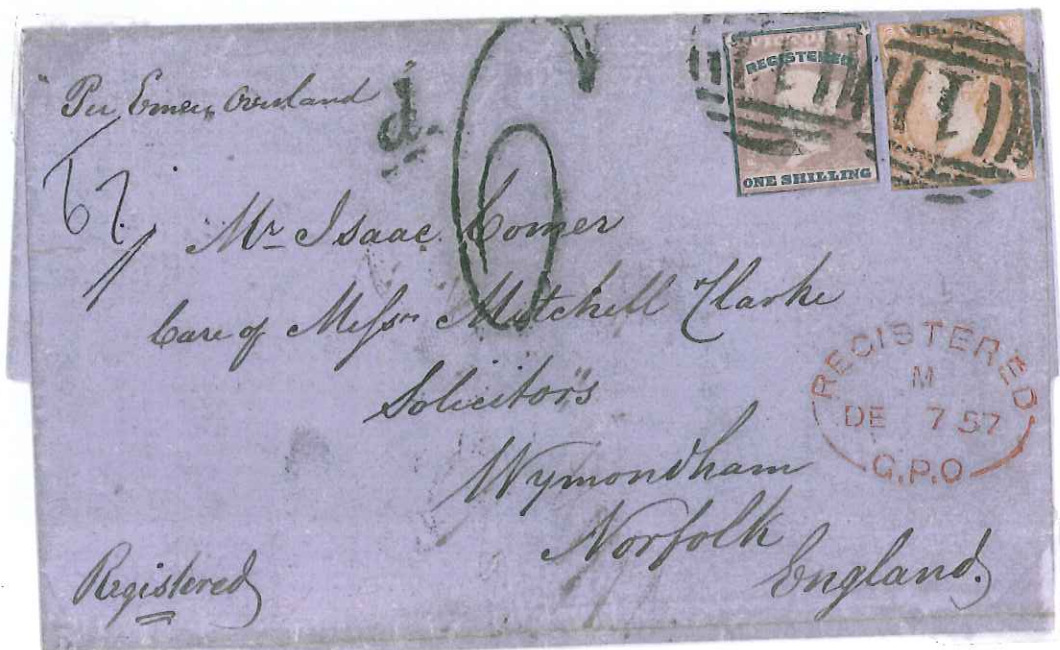 "Per Emeu, Overland"
d. 6
67
REGISTERED
ONE SHILLING
11 11
Mr Isaac Comer
Care of Messrs Mitchell Clarke
Solicitors
Wymondham
Norfolk
England.
Registered
REGISTERED
M
DE 7 57
G.P.O